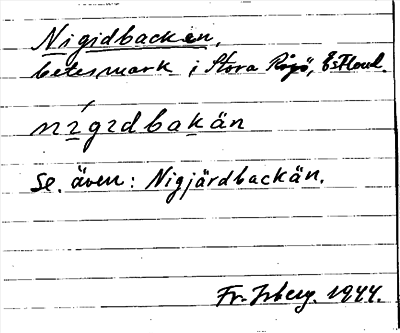 Nigidbackan,
betesmark i Stora Rågö, Estland.
nigidbakän
Se. även: Nigjärdbackän.
Fr. Isberg. 1944.